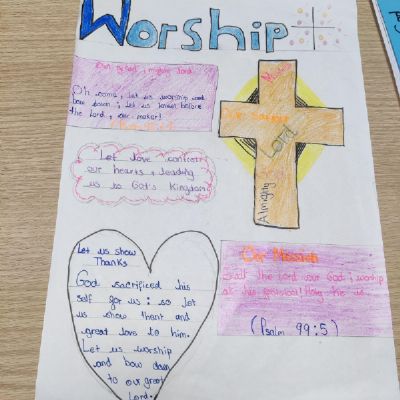 Worship
Our God, mighty lord
Oh come, let us worship and
bow down; let us kneel before
the Lord, our maker!
Our Savior
Lord
Almighty
Let love control
our hearts & leading
us to God's Kingdom
Let us show
Thanks
God sacrificed his
self for us; so let
us show thent and
great love to him.
Let us worship
and bow down
to our great
Lord.
Our Messiah
Exalt the Lord our God; worship
at his footstool! Holy he is
(Psalm 99:5)